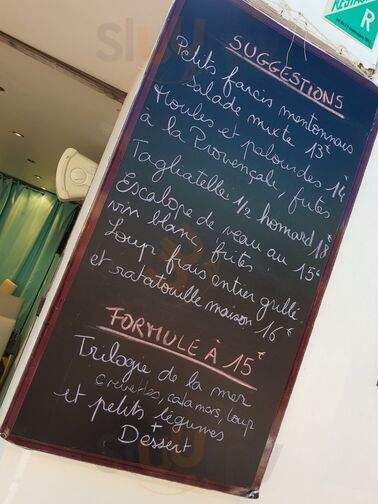 SUGGESTIONS
Petits farcis mentonnais
salade mixte 13€
Moules et palourdes 14
à la Provençale, frites
Tagliatelle 1/2 homard 18€
Escalope de veau au 15€
vin blanc, frites
Loup frais entier grillé
et ratatouille maison 16€
FORMULE À 15€
Trilogie de la mer
crevettes, calamars, loup
et petits légumes
+
Dessert
R